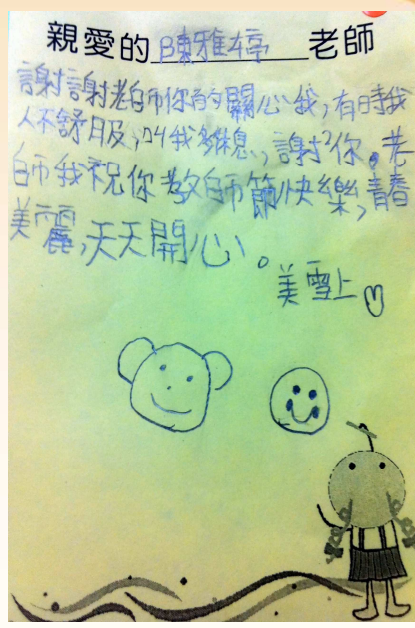 親愛的陳雅婷老師
謝謝老師你的關心我,有時我
人不舒服,叫我多休息,謝謝你。老
師我祝你教師節快樂,青春
美麗,天天開心。
美雪上